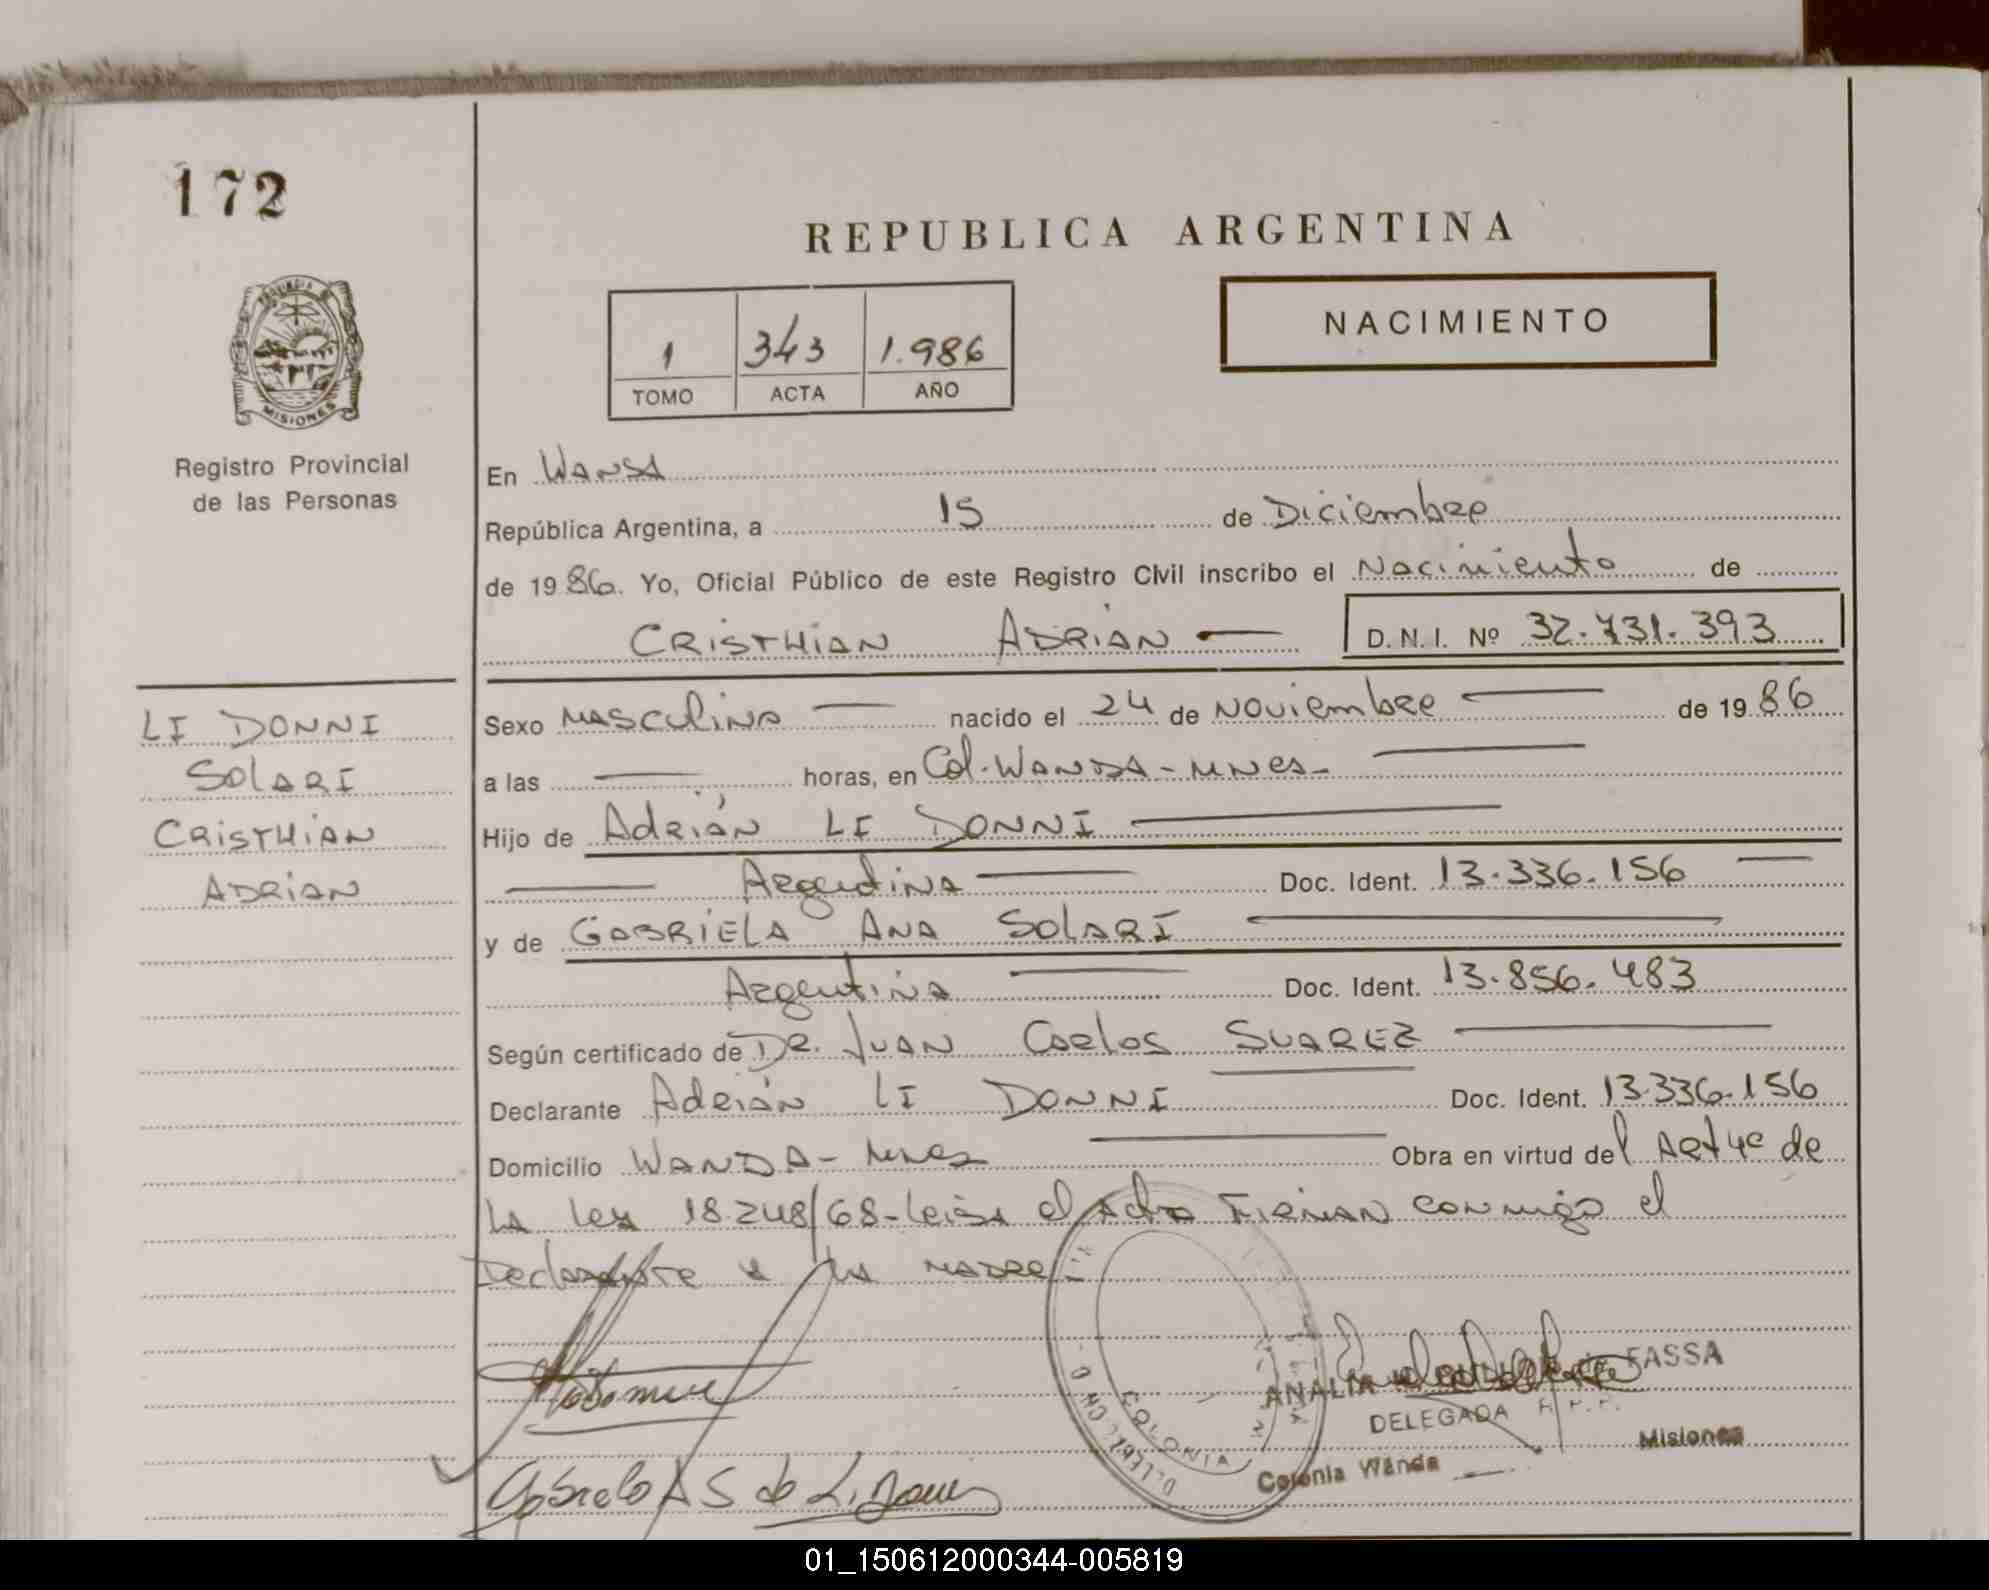 172
REPUBLICA ARGENTINA
NACIMIENTO
1 343 1.986
TOMO ACTA AÑO
MISIONES
Registro Provincial
de las Personas
En WANDA
República Argentina, a 15 de Diciembre
de 1986. Yo, Oficial Público de este Registro Civil inscribo el Nacimiento de
CRISTHIAN ADRIAN D.N.I. Nº 32.731.393
LI DONNI
SOLARI
CRISTHIAN
ADRIAN
Sexo MASCULINO nacido el 24 de NOVIEMBRE de 1986
a las horas, en Col. WANDA - MNES -
Hijo de Adrián LI DONNI
Argentina Doc. Ident. 13.336.156
y de GABRIELA ANA SOLARI
Argentina Doc. Ident. 13.856.483
Según certificado de DR. JUAN Carlos SUAREZ
Declarante Adrián LI DONNI Doc. Ident. 13.336.156
Domicilio WANDA - MNES Obra en virtud del Art 4º de
LA Ley 18.248/68 - Leida el Acta FIRMAN conmigo el
Declarante y la MADRE
COLONIA
ANALIA FASSA
DELEGADA R.P.P.
Colonia Wanda Misiones
01_150612000344-005819